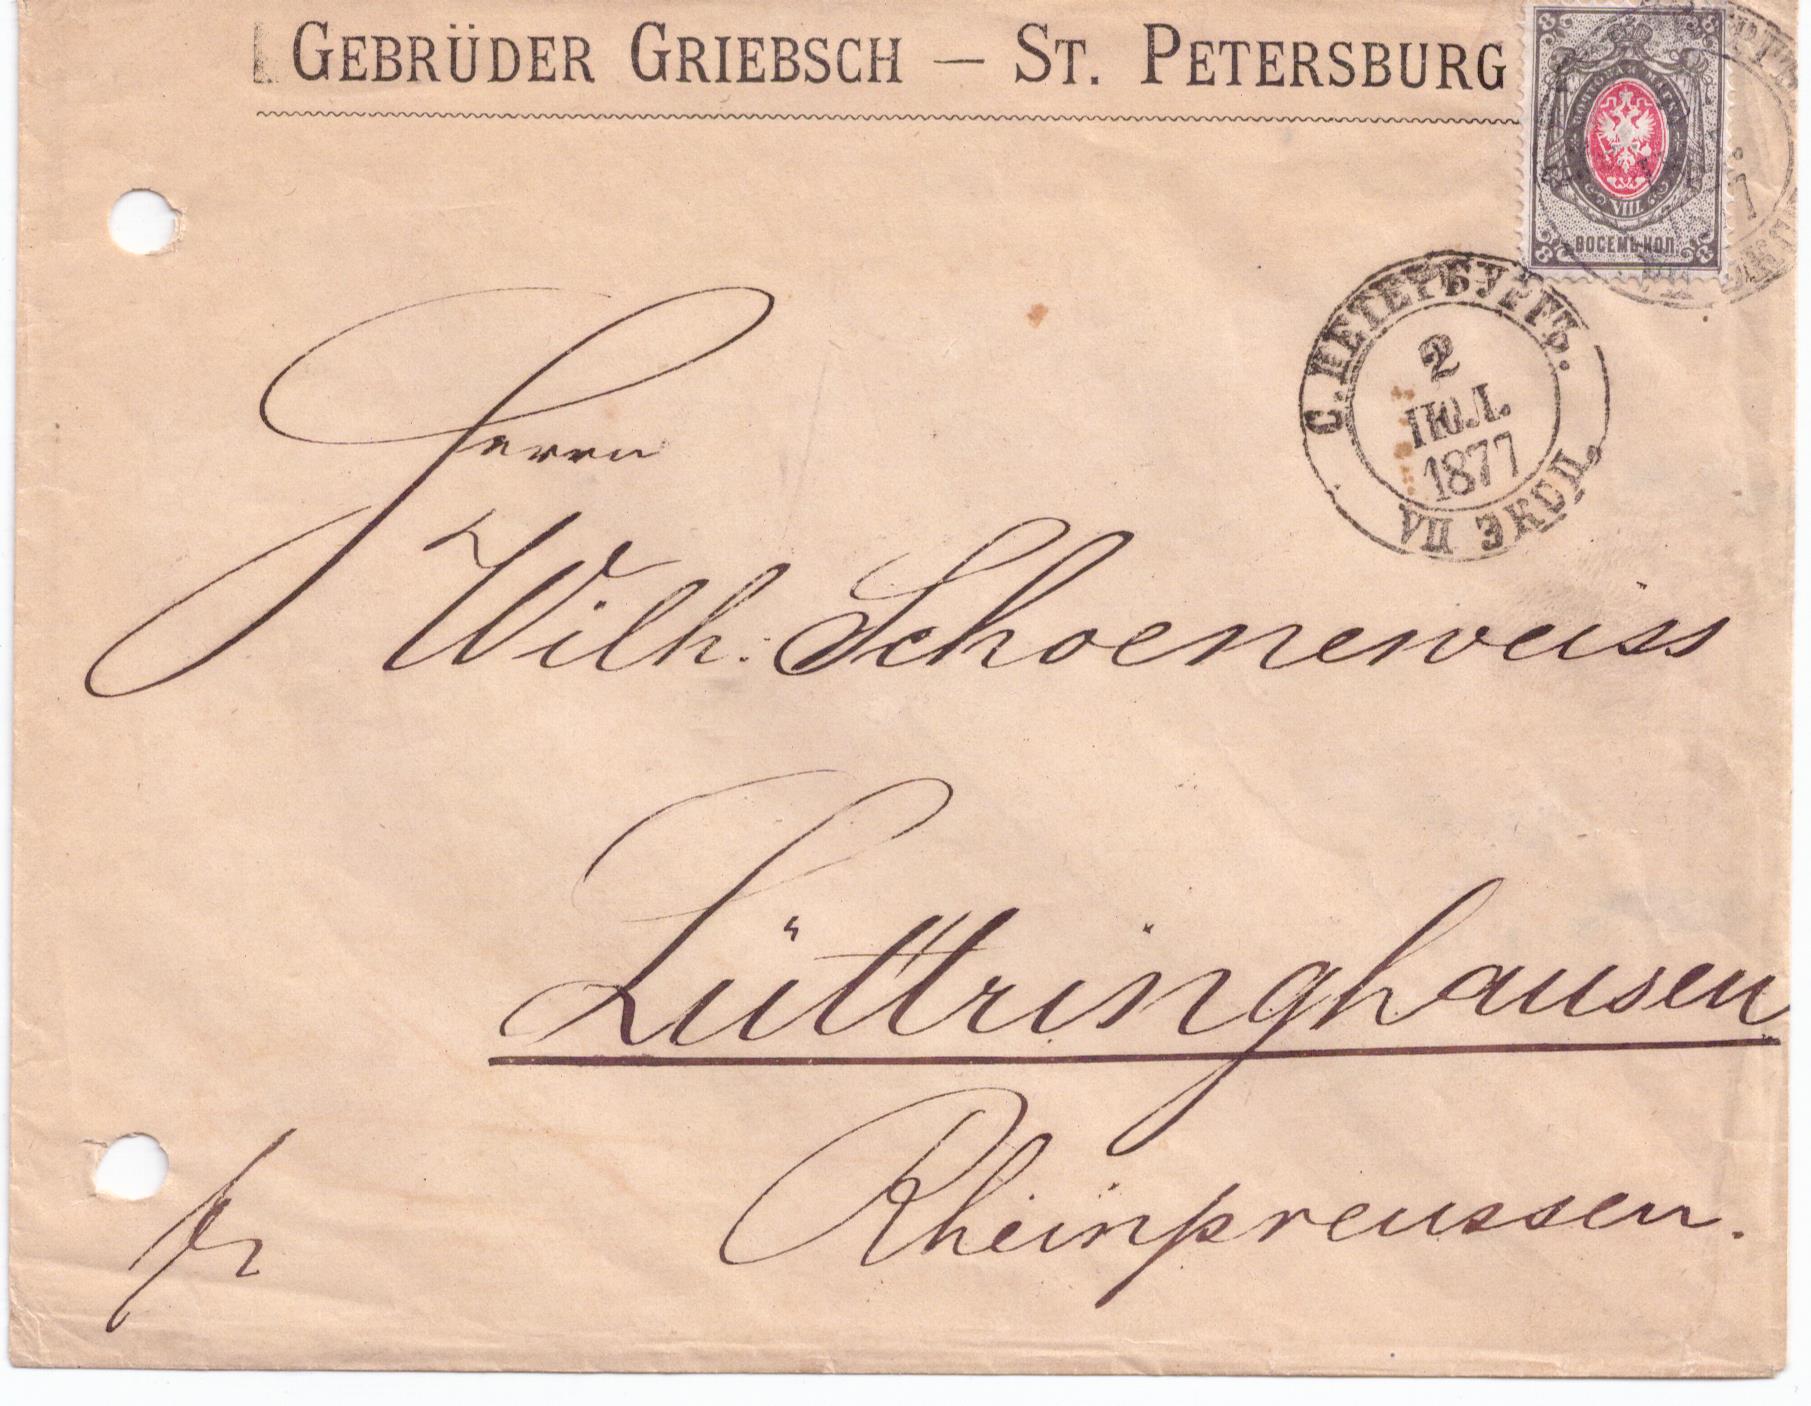 GEBRÜDER GRIEBSCH — ST. PETERSBURG
8 8
ПОЧТОВАЯ МАРКА
VIII
ВОСЕМЬ КОП.
8 8
С. ПЕТЕРБУРГЪ.
2
ІЮЛ.
1877
VII ЭКСП.
Herrn
Wilh. Schoeneweiss
Lüttringhausen
Rheinpreussen.
fr